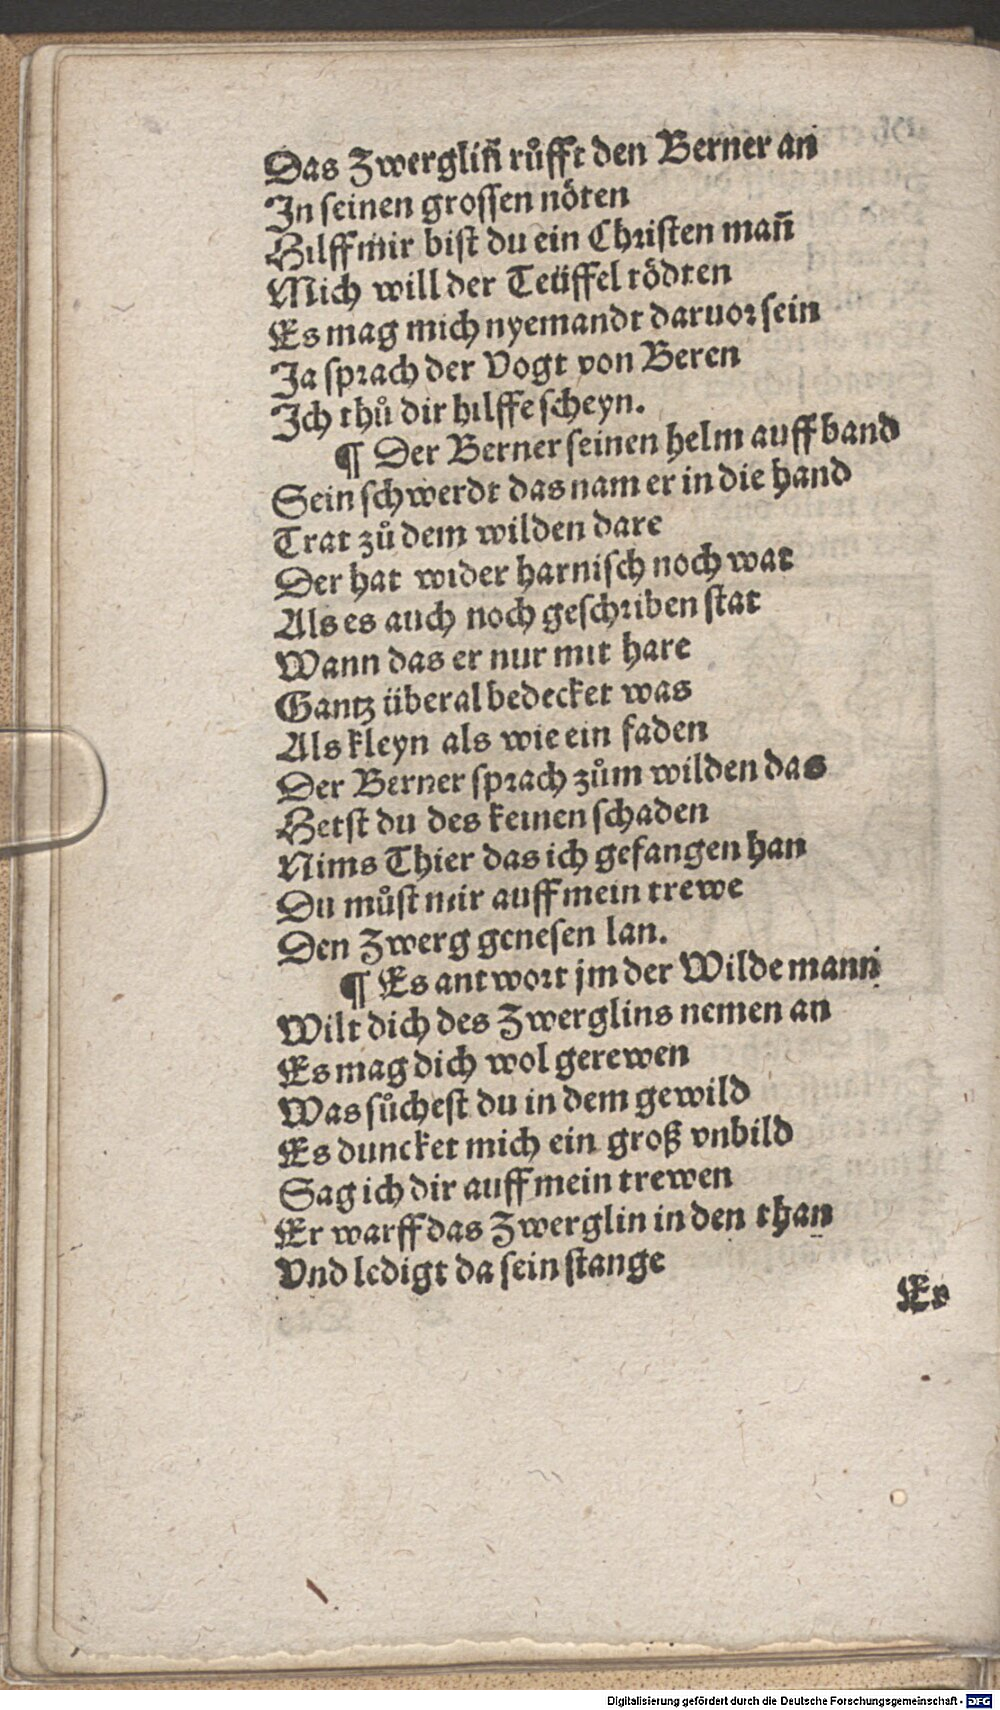 Das Zwerglin̄ růfft den Berner an
In seinen grossen nöten
Hilff mir bist du ein Christen man̄
Mich will der Teüffel tödten
Es mag mich nyemandt daruor sein
Ja sprach der Vogt von Beren
Ich thů dir hilffe scheyn.
¶ Der Berner seinen helm auff band
Sein schwerdt das nam er in die hand
Trat zů dem wilden dare
Der hat wider harnisch noch wat
Als es auch noch geschriben stat
Wann das er nur mit hare
Gantz überal bedecket was
Als kleyn als wie ein faden
Der Berner sprach zům wilden das
Hetst du des keinen schaden
Nims Thier das ich gefangen han
Du můst mir auff mein trewe
Den Zwerg genesen lan.
¶ Es antwort jm der Wilde mann
Wilt dich des Zwerglins nemen an
Es mag dich wol gerewen
Was sůchest du in dem gewild
Es duncket mich ein groß vnbild
Sag ich dir auff mein trewen
Er warff das Zwerglin in den than
Vnd ledigt da sein stange
Er
Digitalisierung gefördert durch die Deutsche Forschungsgemeinschaft - DFG